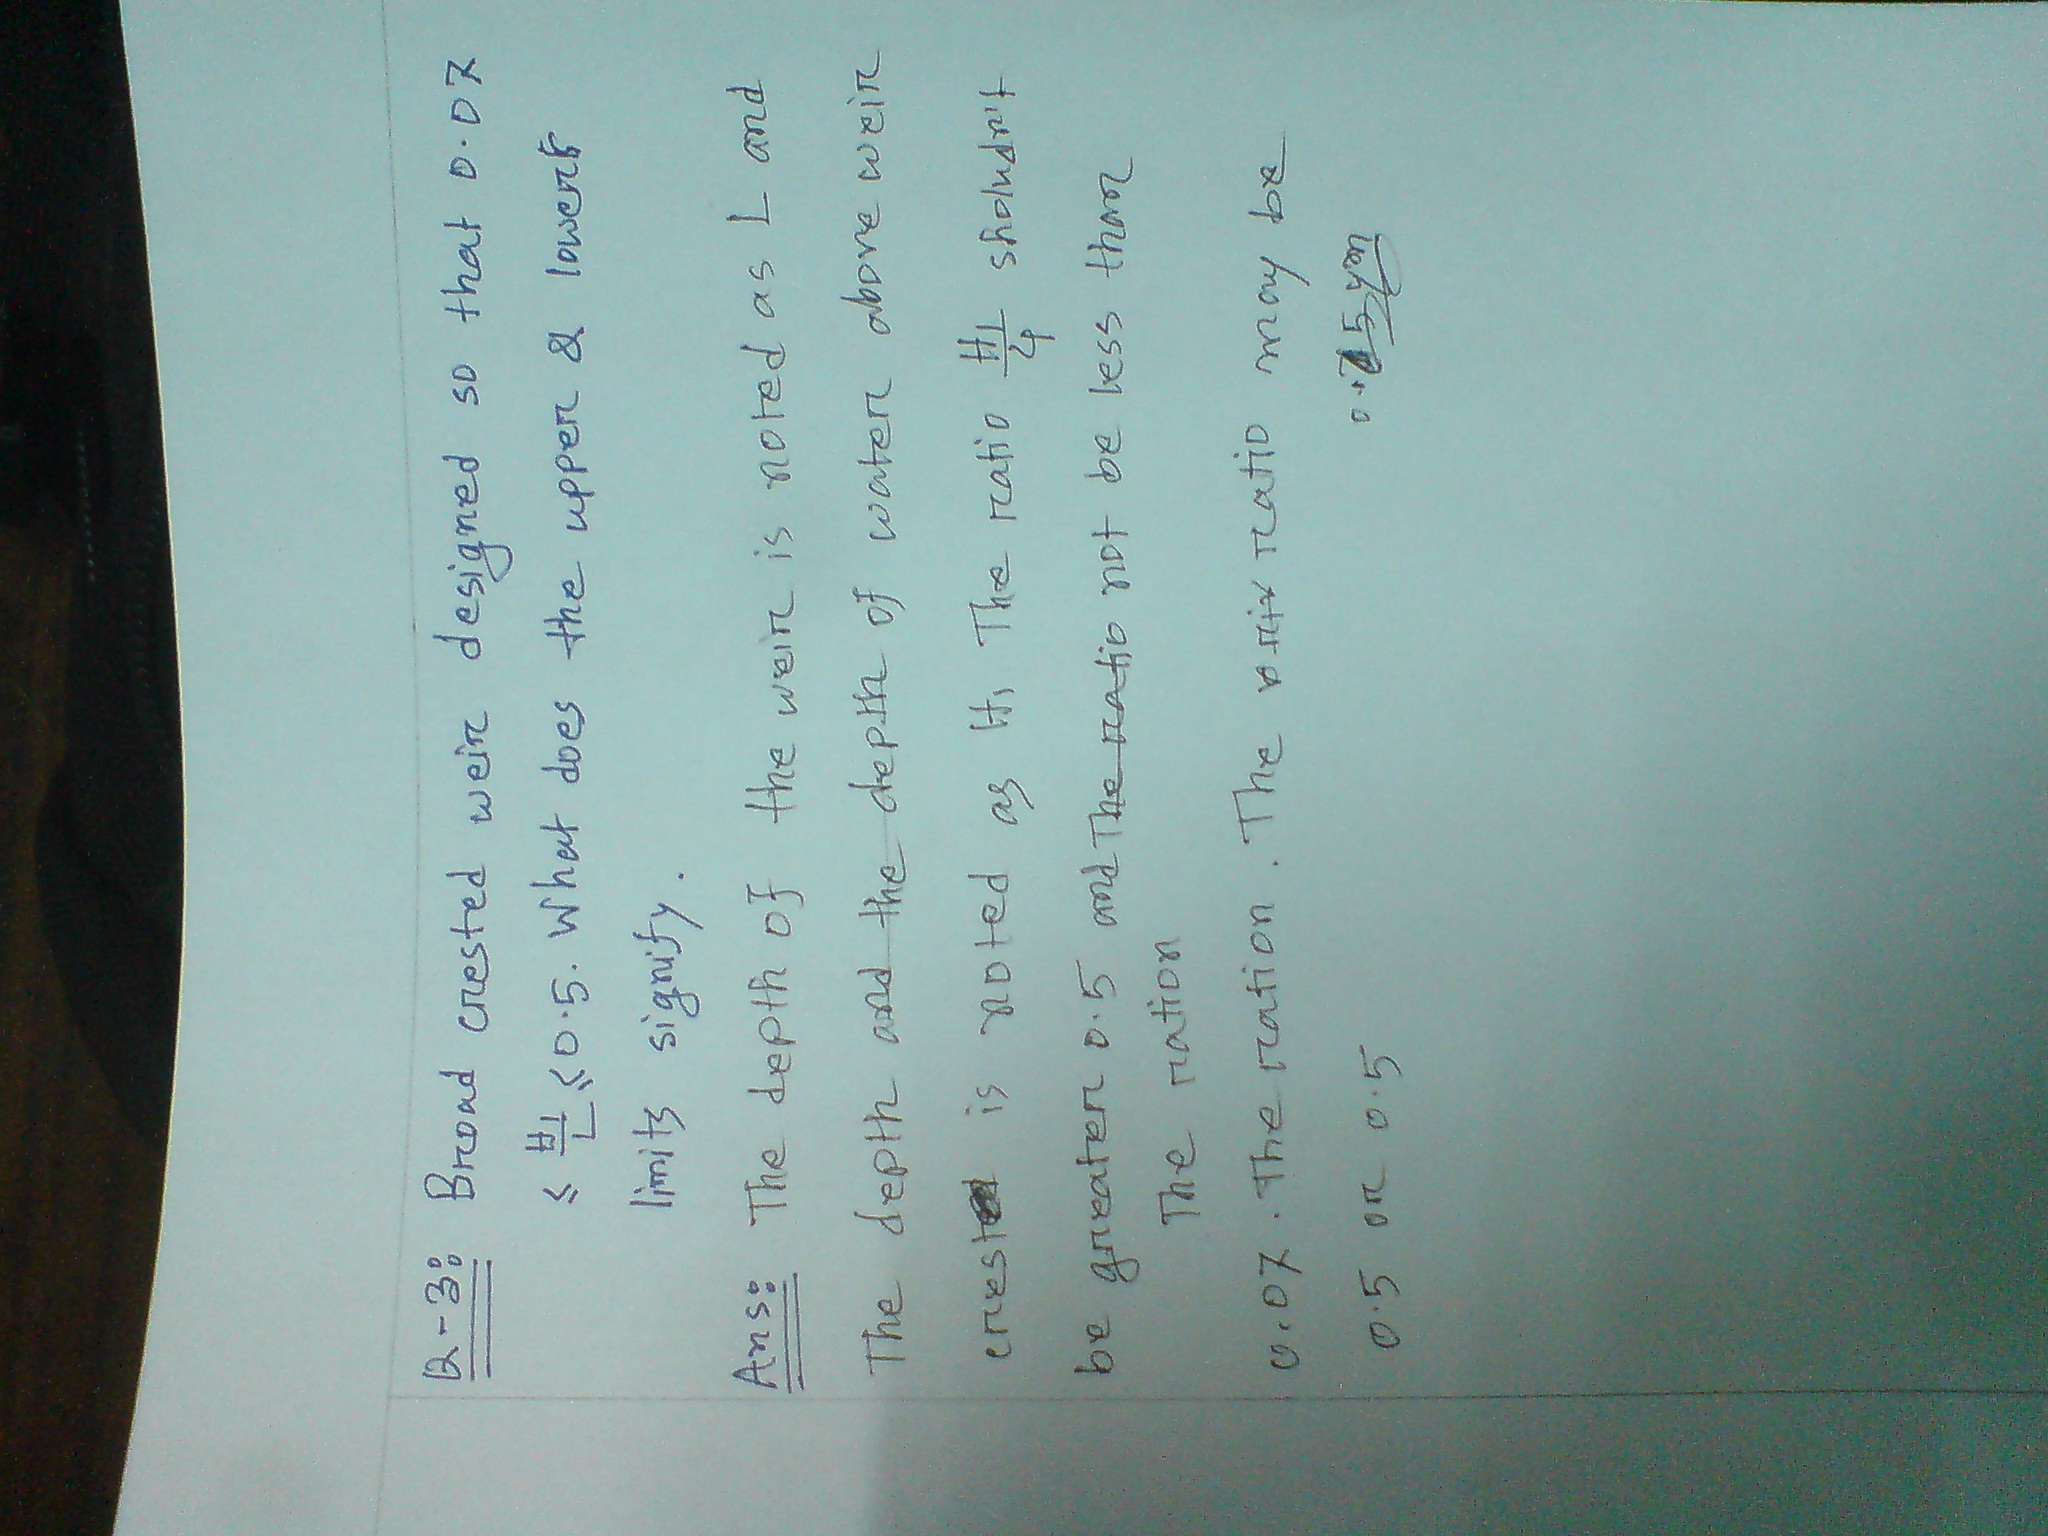 Q-3: Broad crested weir designed so that 0.07
≤ H1/L ≤ 0.5. What does the upper & lower
limits signify.
Ans: The depth of the weir is noted as L and
The depth and the depth of water above weir
crest is noted as H1 The ratio H1/4 sholudn't
be greater 0.5 and The ratio not be less than
The ration
0.07. The ration. The ratio may be
0.5 or 0.5